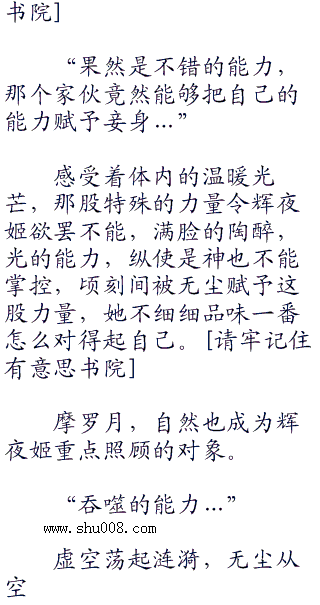 书院]
“果然是不错的能力，
那个家伙竟然能够把自己的
能力赋予妾身…”
感受着体内的温暖光
芒，那股特殊的力量令辉夜
姬欲罢不能，满脸的陶醉，
光的能力，纵使是神也不能
掌控，顷刻间被无尘赋予这
股力量，她不细细品味一番
怎么对得起自己。[请牢记住
有意思书院]
摩罗月，自然也成为辉
夜姬重点照顾的对象。
“吞噬的能力…”
www.shu008.com
虚空荡起涟漪，无尘从
空